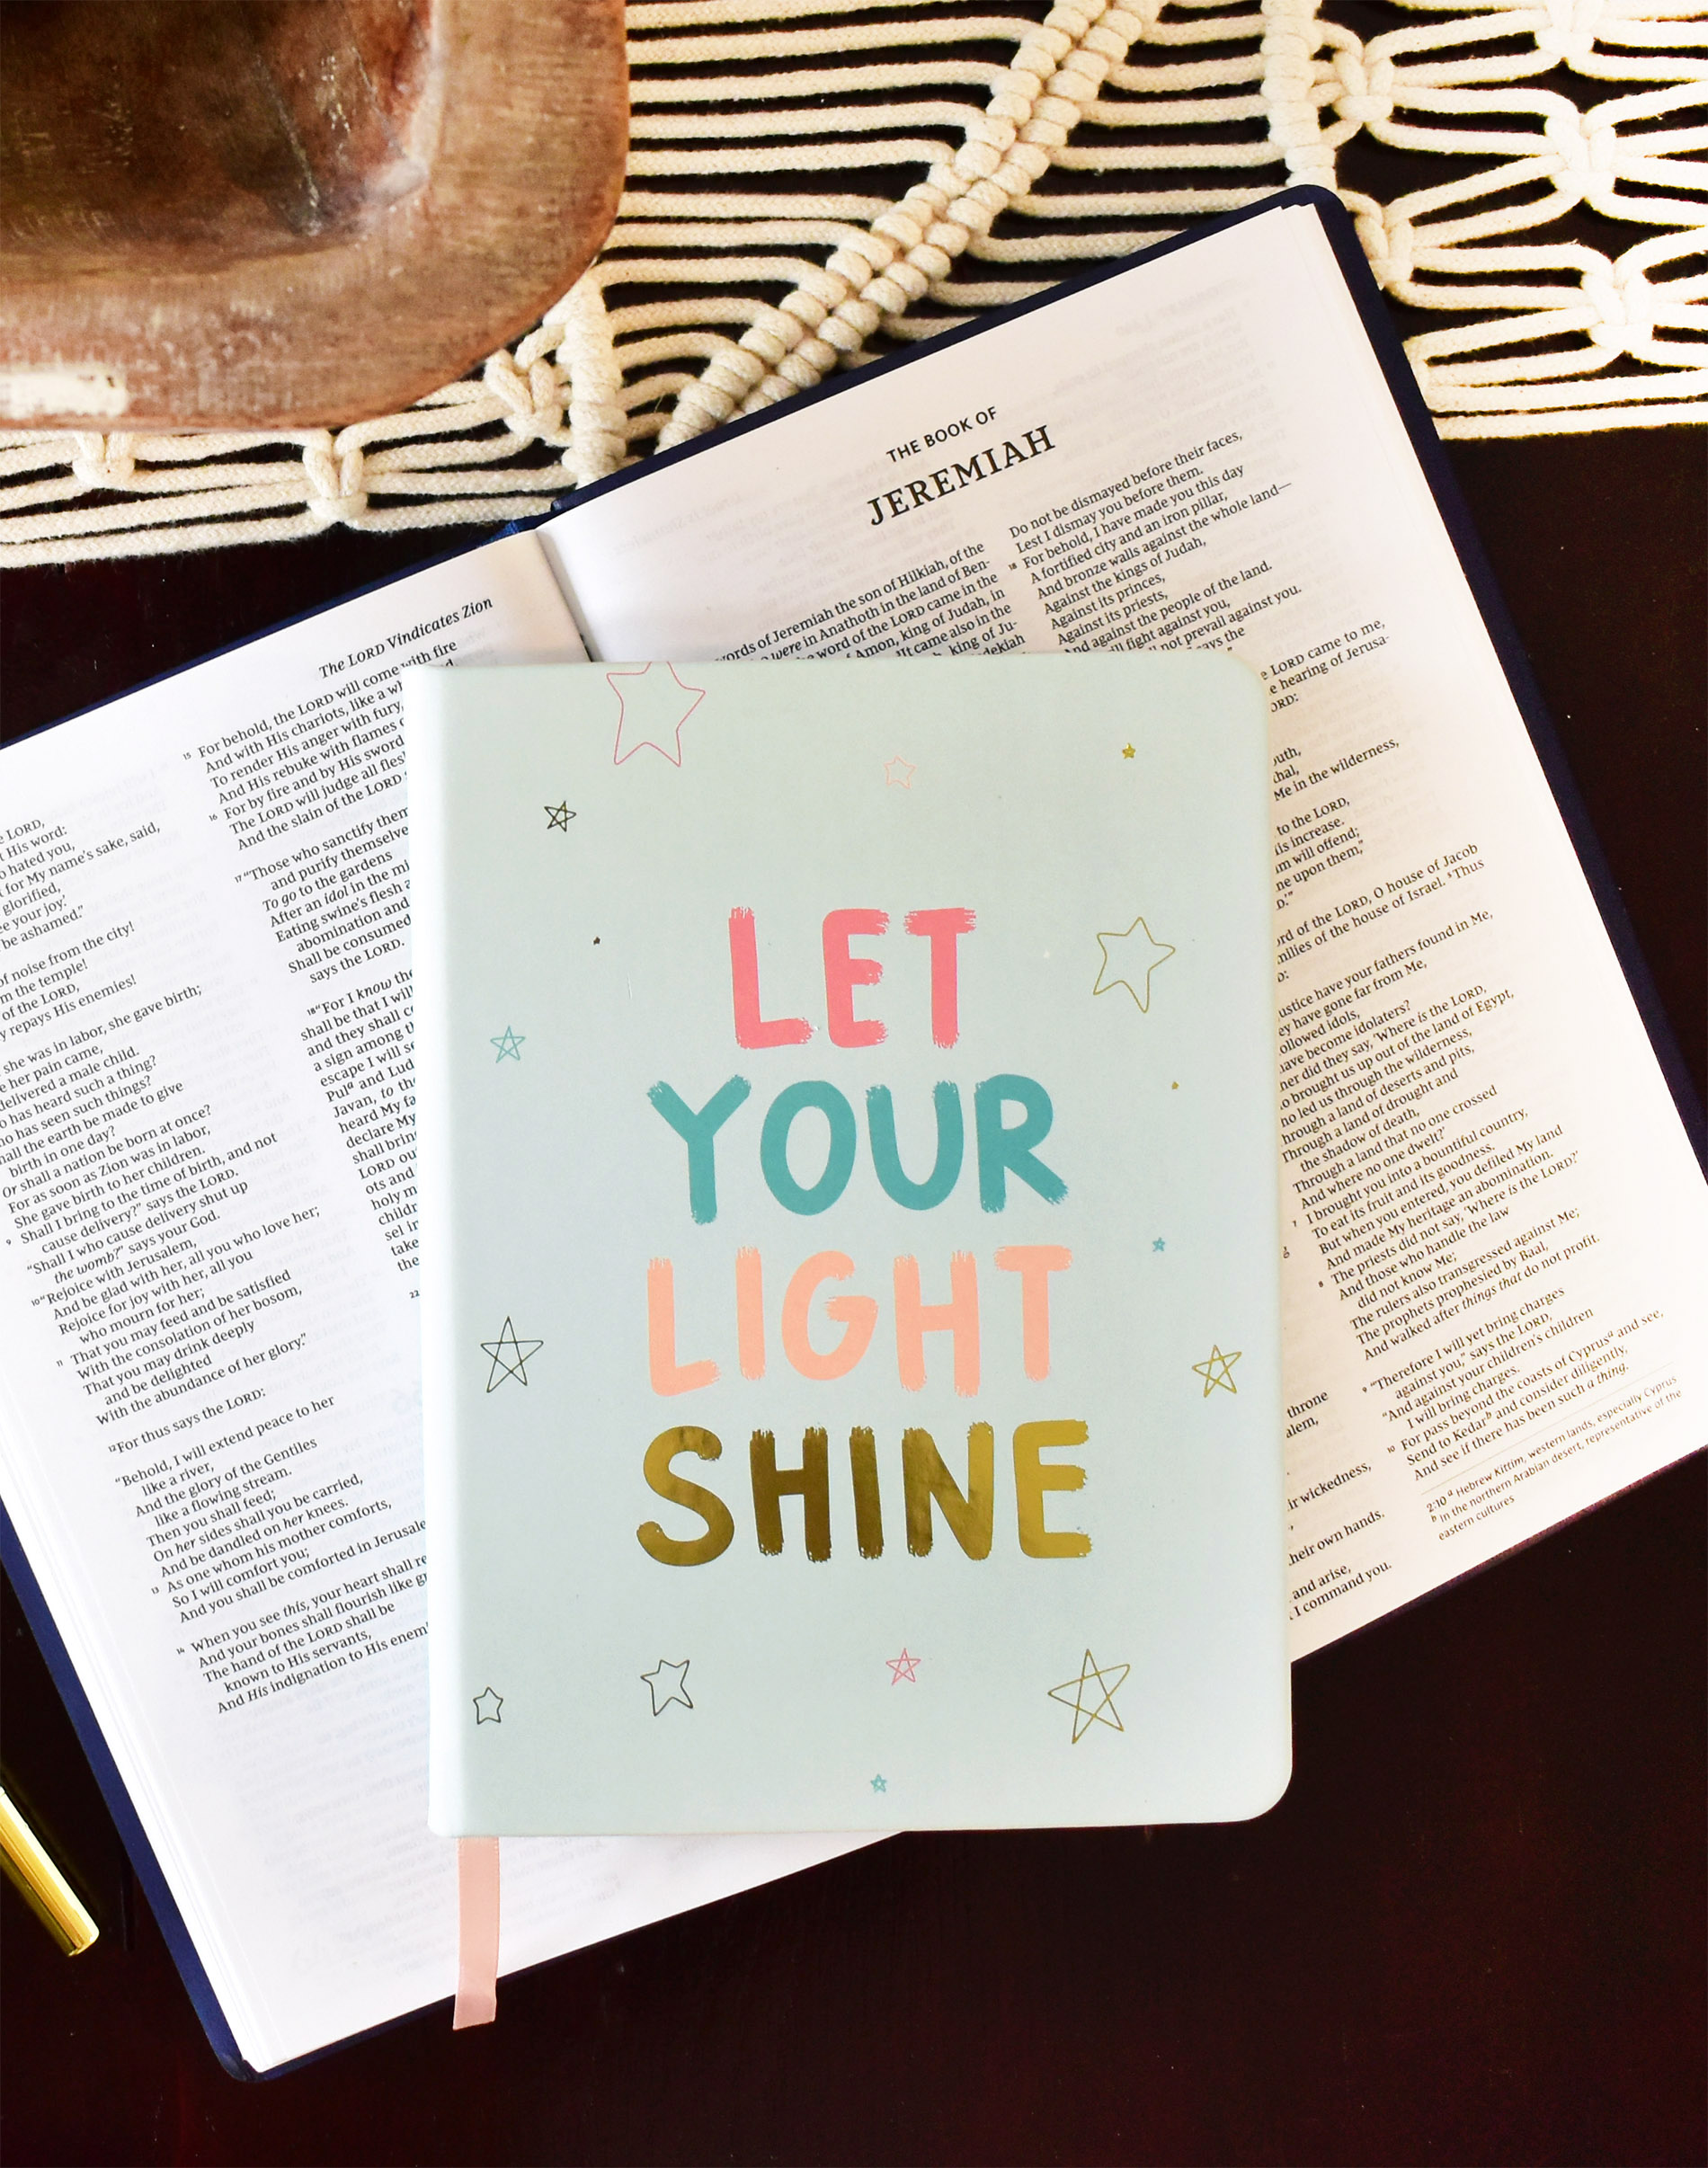 LET
YOUR
LIGHT
SHINE
The LORD Vindicates Zion
LORD,
His word:
hated you,
for My name's sake, said,
glorified,
your joy.'
be ashamed."
of noise from the city!
the temple!
of the LORD,
repays His enemies!
she was in labor, she gave birth;
her pain came,
delivered a male child.
has heard such a thing?
has seen such things?
the earth be made to give
birth in one day?
Or shall a nation be born at once?
For as soon as Zion was in labor,
She gave birth to her children.
9 Shall I bring to the time of birth, and not
cause delivery?" says the LORD.
"Shall I who cause delivery shut up
the womb?" says your God.
10 "Rejoice with Jerusalem,
And be glad with her, all you who love her;
Rejoice for joy with her, all you
who mourn for her;
11 That you may feed and be satisfied
With the consolation of her bosom,
That you may drink deeply
and be delighted
With the abundance of her glory."
12 For thus says the LORD:
"Behold, I will extend peace to her
like a river,
And the glory of the Gentiles
like a flowing stream.
Then you shall feed;
On her sides shall you be carried,
And be dandled on her knees.
13 As one whom his mother comforts,
So I will comfort you;
And you shall be comforted in
14 When you see this, your heart shall
And your bones shall flourish like
The hand of the LORD shall be
known to His servants,
And His indignation to His
15 For behold, the LORD will come with fire
And with His chariots, like a
To render His anger with fury,
And His rebuke with flames
16 For by fire and by His sword
The LORD will judge all
And the slain of the LORD
17 "Those who sanctify
and purify
To go to the gardens
After an idol in the
Eating swine's flesh
abomination and
Shall be consumed
says the LORD.
18 "For I know
shall be that I
and they shall
a sign among
escape I will
Pul a and
Javan, to
heard My
declare My
shall
LORD
holy
take
the
22
THE BOOK OF
JEREMIAH
of Jeremiah the son of Hilkiah, of the
were in Anathoth in the land of Ben-
the word of the LORD came in the
Amon, king of Judah, in
It came also in the
king of Ju-
Do not be dismayed before their faces,
Lest I dismay you before them.
18 For behold, I have made you this day
A fortified city and an iron pillar,
And bronze walls against the whole land—
Against the kings of Judah,
Against its princes,
Against its priests,
And against the people of the land.
fight against you,
not prevail against you.
says the
LORD came to me,
hearing of Jerusa-
Me in the wilderness,
to the LORD,
increase.
will offend;
upon them,"
of the LORD, O house of Jacob
of the house of Israel. 5 Thus
have your fathers found in Me,
have gone far from Me,
idols,
become idolaters?
did they say, 'Where is the LORD,
brought us up out of the land of Egypt,
led us through the wilderness,
Through a land of deserts and pits,
Through a land of drought and
the shadow of death,
Through a land that no one crossed
And where no one dwelt?'
7 I brought you into a bountiful country,
To eat its fruit and its goodness.
But when you entered, you defiled My land
And made My heritage an abomination.
8 The priests did not say, 'Where is the LORD?'
And those who handle the law
did not know Me;
The rulers also transgressed against Me;
The prophets prophesied by Baal,
And walked after things that do not profit.
9 "Therefore I will yet bring charges
against you," says the LORD,
"And against your children's children
I will bring charges.
10 For pass beyond the coasts of Cyprus a and see,
Send to Kedar b and consider diligently,
And see if there has been such a thing.
throne
wickedness,
their own hands.
and arise,
I command you.
2:10 a Hebrew Kittim, western lands, especially Cyprus
b In the northern Arabian desert, representative of the
eastern cultures